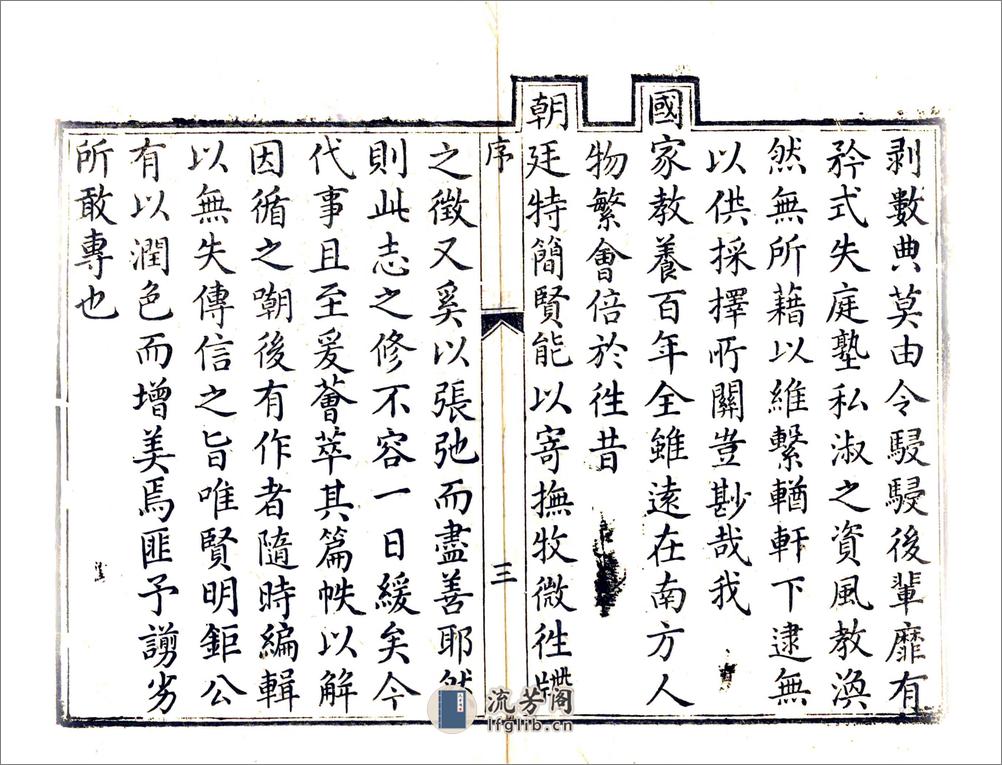 剥數典莫由令駸駸後輩靡有
矜式失庭塾私淑之資風教渙
然無所藉以維繫輶軒下逮無
以供採擇所關豈尠哉我
國家教養百年全雖遠在南方人
物繁會倍於徃昔
朝廷特簡賢能以寄撫牧微徃牒
序
三
之徵又奚以張弛而盡善耶然
則此志之修不容一日緩矣今
代事且至爰薈萃其篇帙以解
因循之嘲後有作者隨時編輯
以無失傳信之旨唯賢明鉅公
有以潤色而增美焉匪予謭劣
所敢專也
流芳阁
lfglib.cn